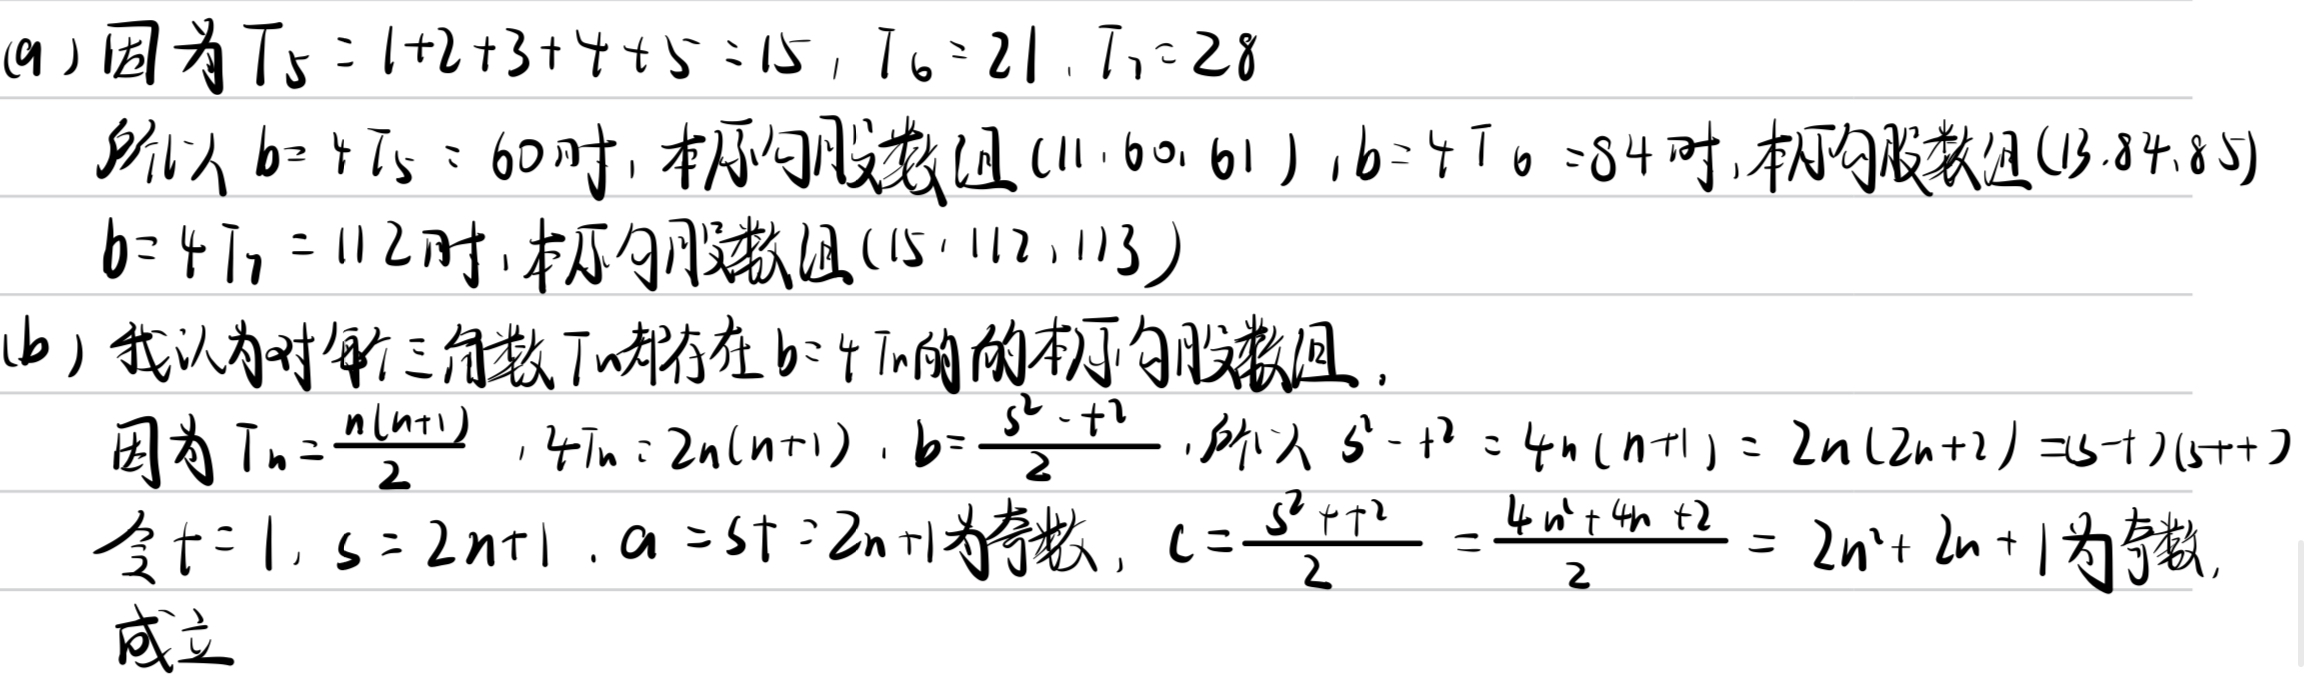 (a) 因为 T₅ = 1+2+3+4+5 = 15, T₆ = 21, T₇ = 28
所以 b = 4T₅ = 60时, 本原勾股数组 (11, 60, 61), b = 4T₆ = 84时, 本原勾股数组 (13, 84, 85)
b = 4T₇ = 112时, 本原勾股数组 (15, 112, 113)
(b) 我认为对每个三角数Tn都存在 b = 4Tn的的本原勾股数组.
因为 Tn = n(n+1)/2, 4Tn = 2n(n+1), b = (s²-t²)/2, 所以 s²-t² = 4n(n+1) = 2n(2n+2) = (s-t)(s+t)
令 t = 1, s = 2n+1. a = st = 2n+1为奇数, c = (s²+t²)/2 = (4n²+4n+2)/2 = 2n²+2n+1为奇数,
成立